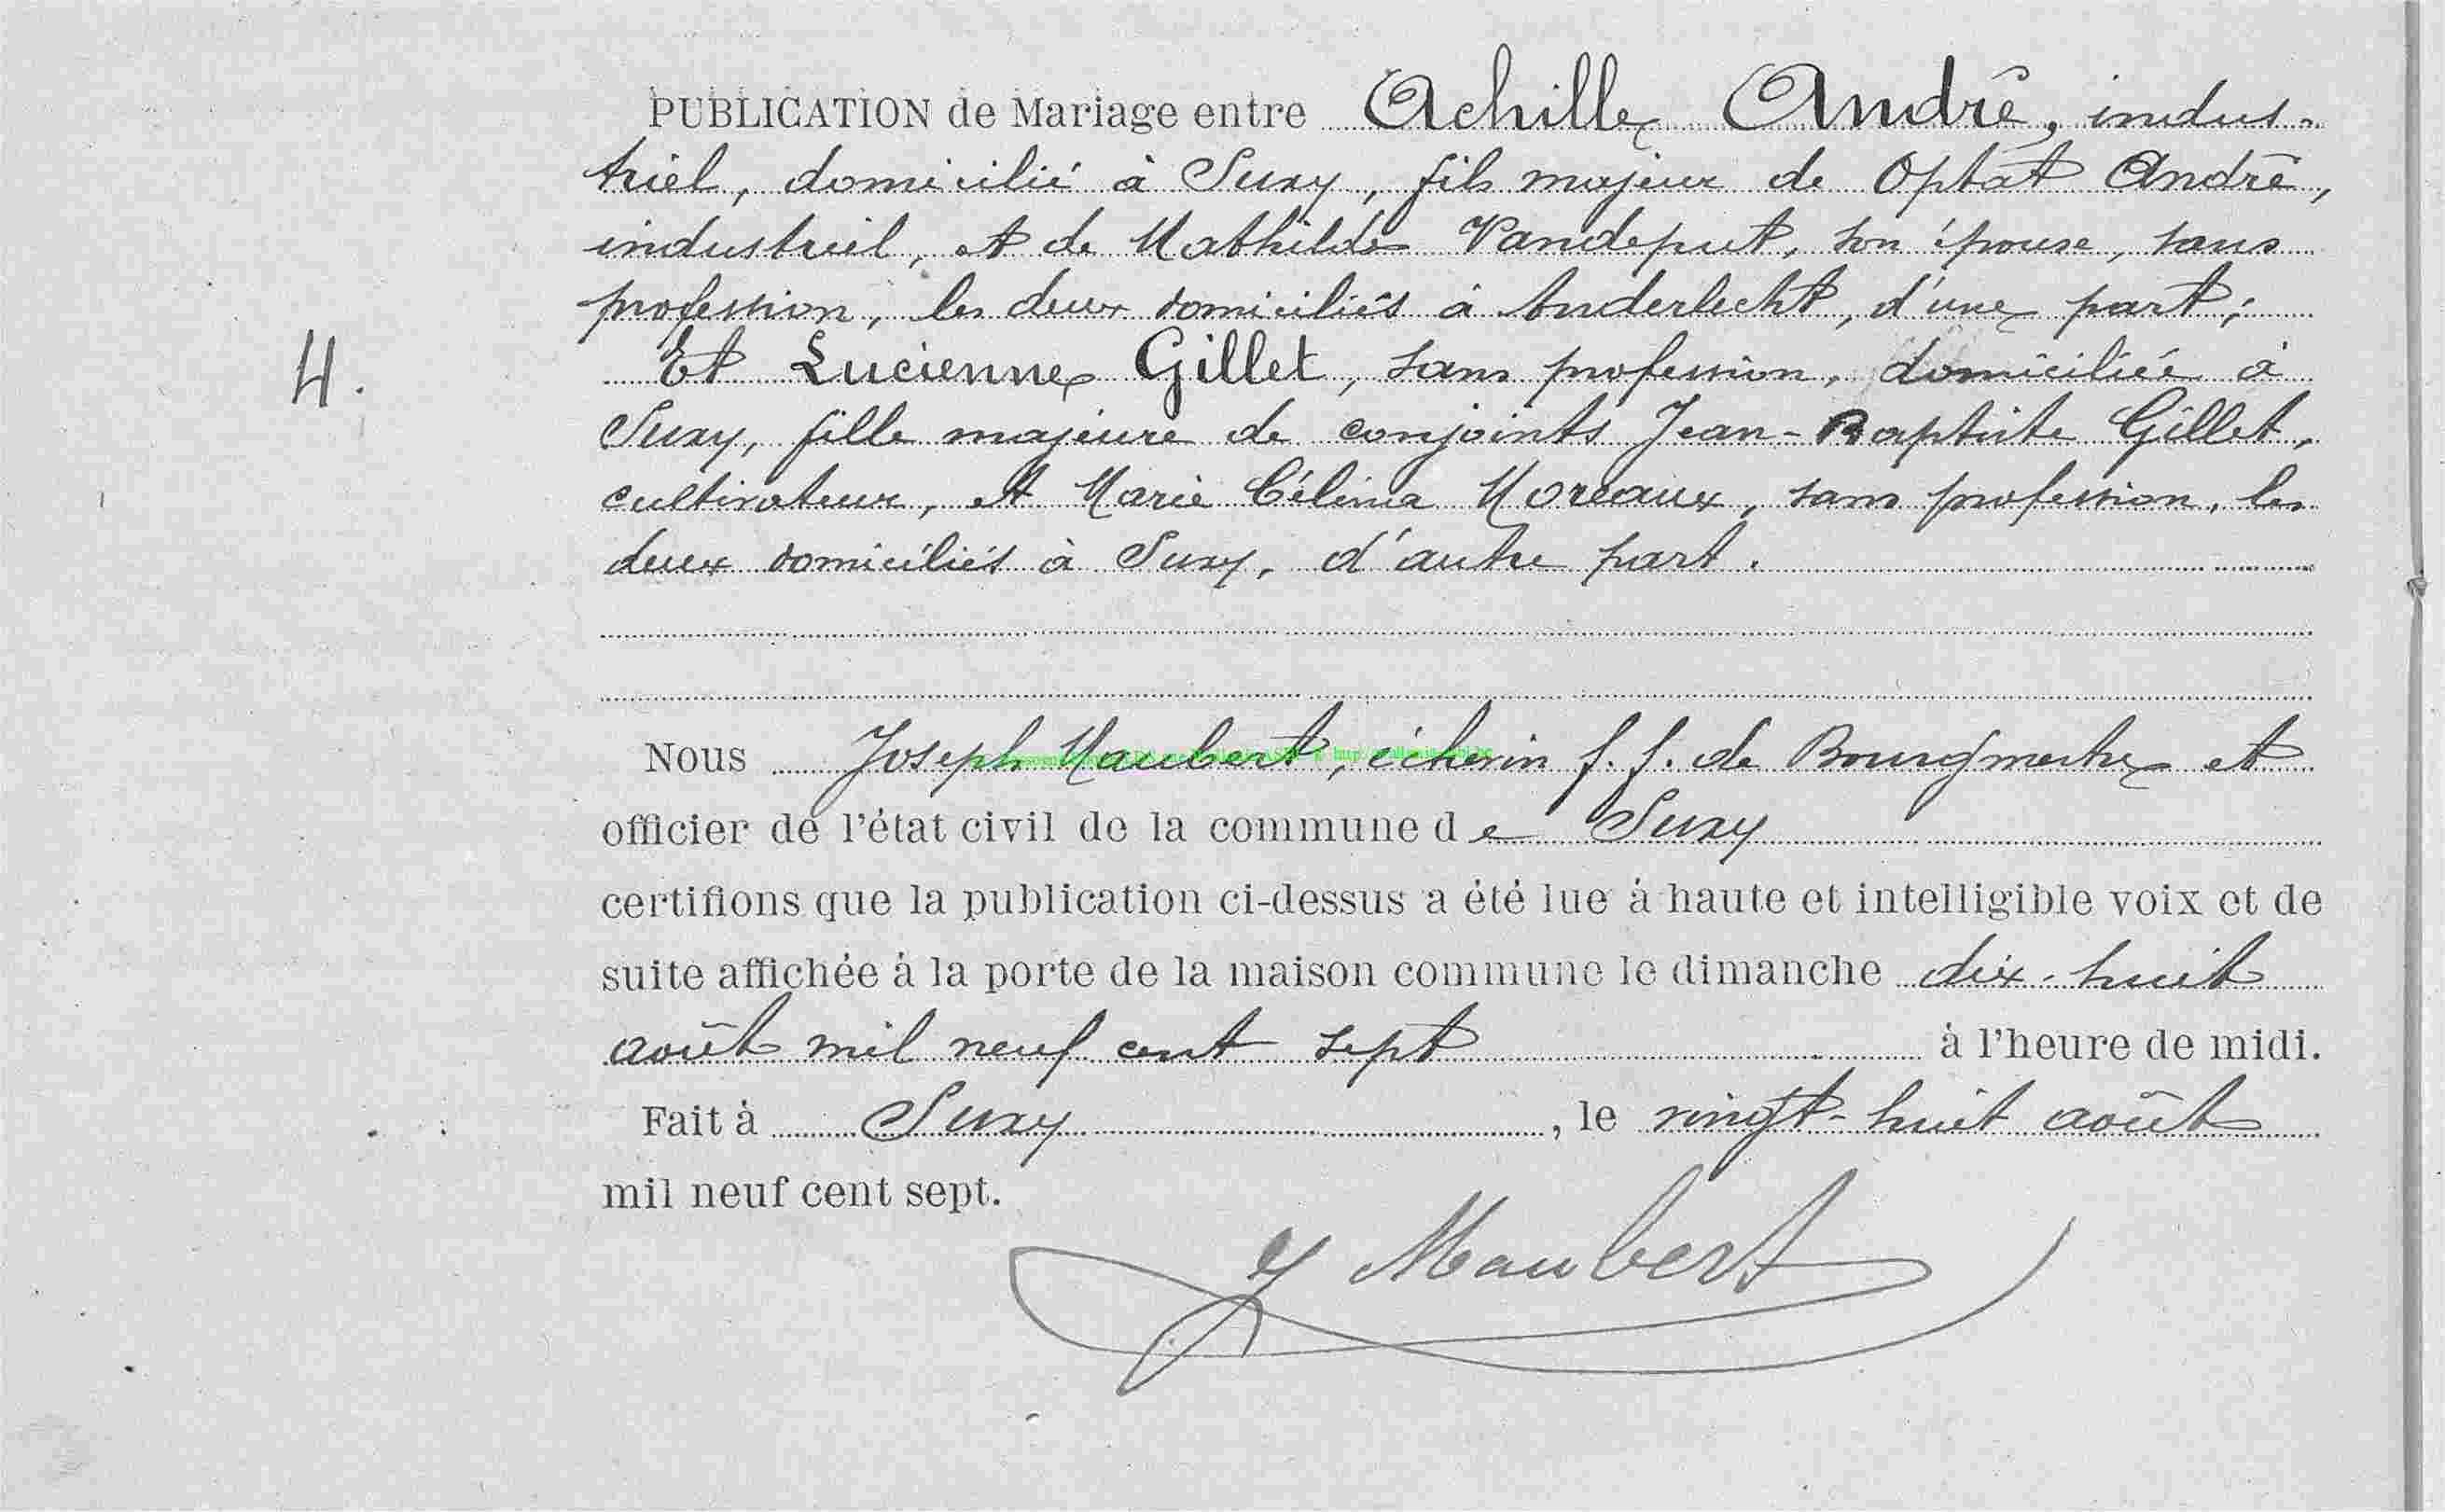 PUBLICATION de Mariage entre Achille André, indus-
triel, domicilié à Suxy, fils majeur de Optat André,
industriel, et de Mathilde Vandeput, son épouse, sans
profession, les deux domiciliés à Anderlecht, d'une part;
4.
Et Lucienne Gillet, sans profession, domiciliée à
Suxy, fille majeure de conjoints Jean-Baptiste Gillet,
cultivateur, et Marie Célina Moreaux, sans profession, les
deux domiciliés à Suxy, d'autre part.
Nous Joseph Maubert, échevin f. f. de Bourgmestre et
officier de l'état civil de la commune de Suxy
certifions que la publication ci-dessus a été lue à haute et intelligible voix et de
suite affichée à la porte de la maison commune le dimanche dix-huit
août mil neuf cent sept à l'heure de midi.
Fait à Suxy, le vingt-huit août
mil neuf cent sept.
J Maubert